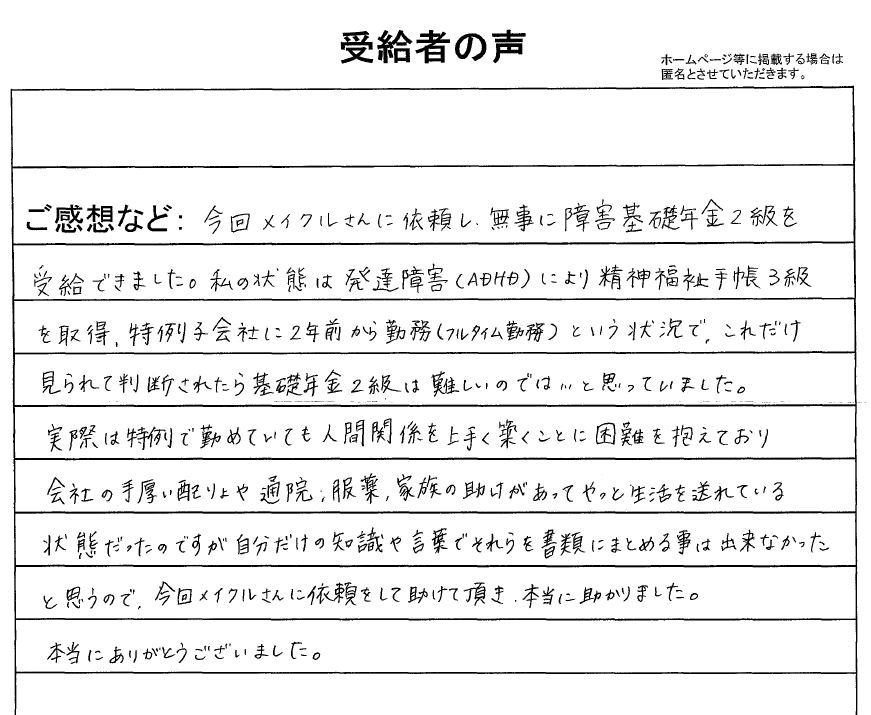 受給者の声
ホームページ等に掲載する場合は
匿名とさせていただきます。
ご感想など: 今回メイクルさんに依頼し、無事に障害基礎年金2級を
受給できました。私の状態は発達障害(ADHD)により精神福祉手帳3級
を取得、特例子会社に2年前から勤務(フルタイム勤務)という状況で、これだけ
見られて判断されたら基礎年金2級は難しいのでは…と思っていました。
実際は特例で勤めていても人間関係を上手く築くことに困難を抱えており
会社の手厚い配りょや通院、服薬、家族の助けがあってやっと生活を送れている
状態だったのですが自分だけの知識や言葉でそれらを書類にまとめる事は出来なかった
と思うので、今回メイクルさんに依頼をして助けて頂き、本当に助かりました。
本当にありがとうございました。